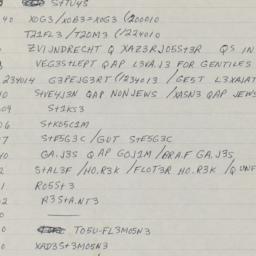 S4TU4S
40 X0G3/X0B3=X0G3 (200010
T21FL3/T20M3 (1224010
ZVIJNDRECHT Q XAZ3RJ05St3R QS IN
VEG3StLEPT QAP L3VA.J3 FOR GENTILES
234014 G3PEJG3RT (1234013 /GEST L3XAIAT
StVE4J3N QAP NONJEWS /XASN3 QAP JEWS
09 St1KS3
06 StK05C1M
7 StE5G3C /GUT StE5G3C
GA.J3S QAP G0J1M/BRAF GA.J3S
2 StAL3F /H0.R3K /FL0T3R H0.R3K /QUNF
1 R05St3
2 A3StA.NT3
0 T05U-FL3M05N3
0 XAD3St3M05N3